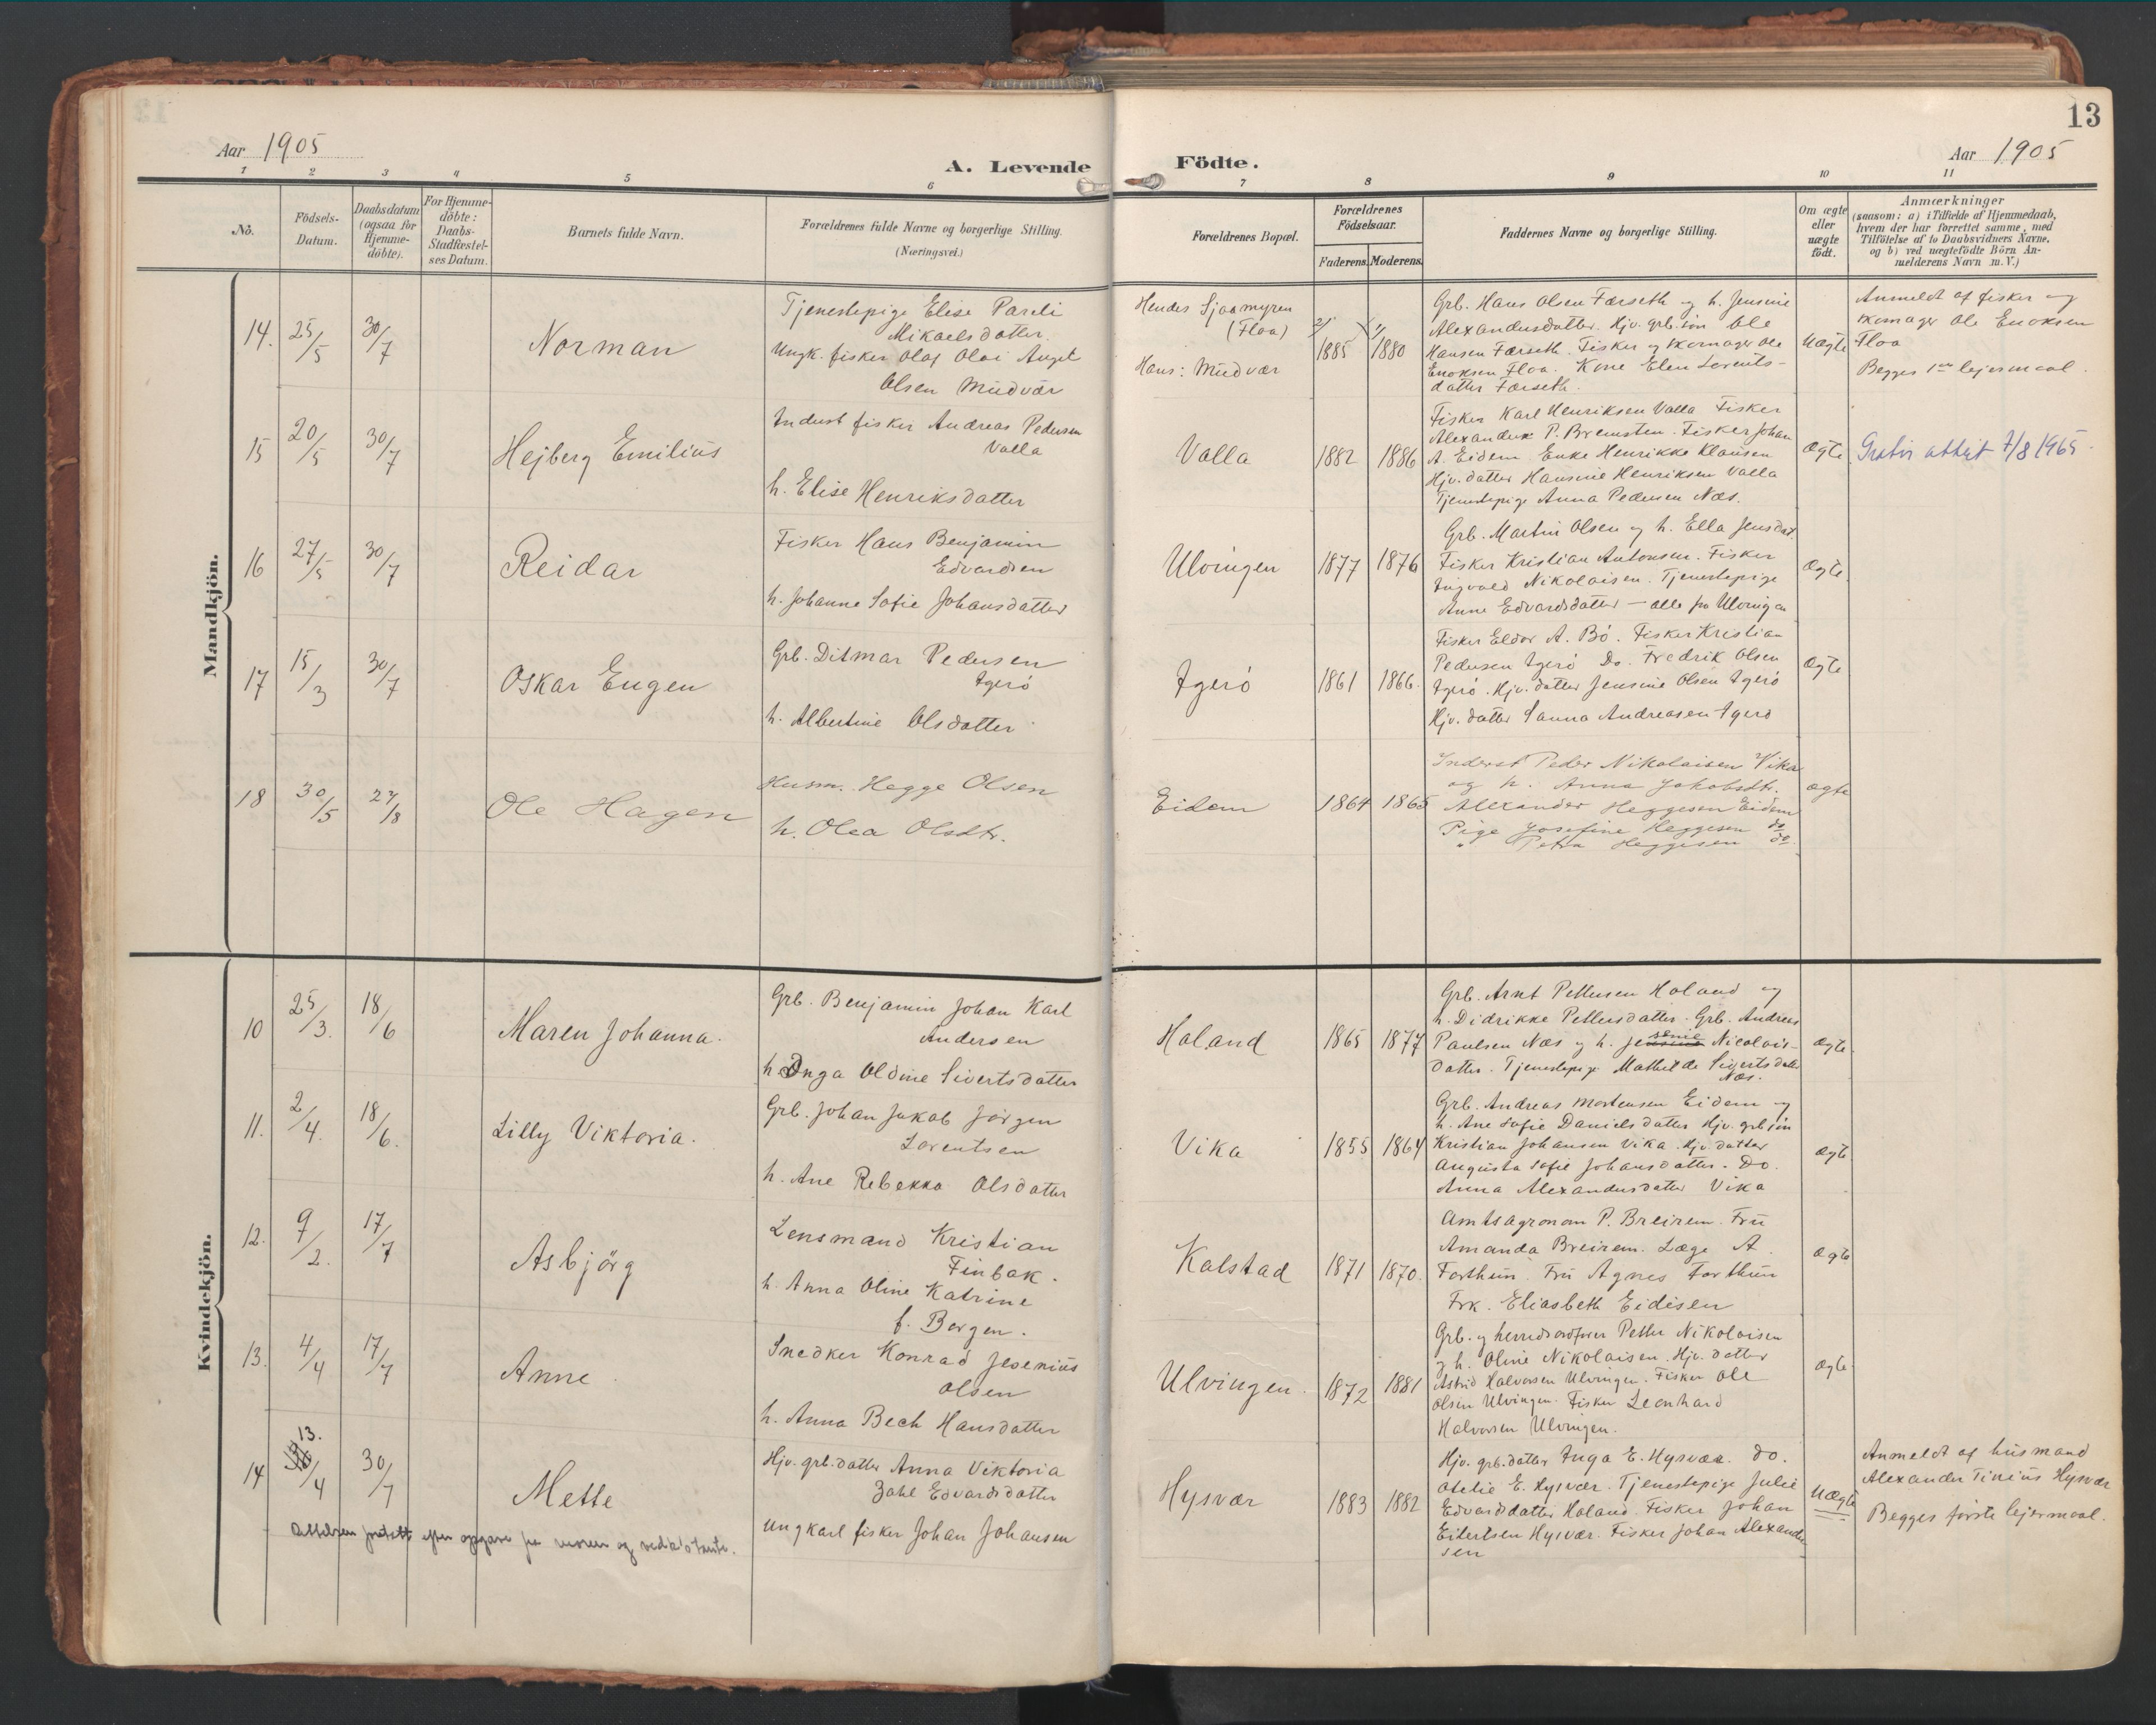 13
Aar 1905
A. Levende Födte.
Aar 1905
1 2 3 4 5 6 7 8 9 10 11
No.
Födsels-Datum.
Daabsdatum (ogsaa for Hjemme-döbte).
For Hjemme-döbte: Daabs-Stadfæstel-ses Datum.
Barnets fulde Navn.
Forældrenes fulde Navne og borgerlige Stilling.
(Næringsvei.)
Forældrenes Bopæl.
Forældrenes Födselsaar.
Faderens. Moderens.
Faddernes Navne og borgerlige Stilling.
Om ægte eller uægte födt.
Anmærkninger
(saasom: a) i Tilfælde af Hjemmedaab,
hvem der har forrettet samme, med
Tilföielse af to Daabsvidners Navne,
og b) ved uægtefödte Börn An-
melderens Navn m.V.)
Mandkjön.
14. 25/5 30/7
Norman
Tjenestepige Elise Pareli
Mikaelsdatter.
Ungk. fisker Olaf Olai Auget
Olsen Mudvær
Hendes Sjaamyren
(Floa)
Hans: Mudvær
1885 1880
Grb. Hans Olsen Færseth og h. Jensine
Alexandersdatter. Hjv. grb. søn Ole
Hansen Færseth. Fisker og skomager Ole
Enoksen Floa. Kone Elen Lorents-
datter Færseth.
Uægte
Anmeldt af fisker og
skomager Ole Enoksen
Floa
Begges 1ste lejermaal.
15 20/5 30/7
Hejberg Emilius
Inderst fisker Andreas Pedersen
Valla
h. Elise Henriksdatter
Valla
1882 1886
Fisker Karl Henriksen Valla Fisker
Alexander P. Bremsten. Fisker Johan
A. Eidem Enke Henrikke Klausen
Hjv. datter Hansine Henriksen Valla
Tjenestepige Anna Pedersen Næs.
Ægte
Gratis attest 7/8 1965.
16 27/5 30/7
Reidar
Fisker Hans Benjamin
Edvardsen
h. Johanne Sofie Johansdatter
Ulvingen
1877 1876
Grb. Martin Olsen og h. Ella Jensdat.
Fisker Kristian Antonsen. Fisker
Ingvald Nikolaisen. Tjenestepige
Anne Edvardsdatter — alle fra Ulvingen
Ægte.
17 15/3 30/7
Oskar Eugen
Grb. Ditmar Pedersen
Igerö
h. Albertine Olsdatter
Igerö
1861 1866.
Fisker Eldor A. Bö. Fisker Kristian
Pedersen Igerö Do. Fredrik Olsen
Igerö. Hjv. datter Jensine Olsen Igerö
Hjv. datter Sanna Andreasen Igerö
Ægte
18 30/5 27/8
Ole Hagen
Husm. Hegge Olsen
h. Olea Olsdtr.
Eidem
1864 1865
Inderst Peder Nikolaisen Vika
og h. Anna Jakobsdtr.
Alexander Heggesen Eidem
Pige Josefine Heggesen do
" Petra Heggesen do.
ægte
Kvindekjön.
10 25/3. 18/6
Maren Johanna.
Grb. Benjamin Johan Karl
Andersen
h. Inga Oldine Sivertsdatter
Holand
1865 1877
Grb. Arnt Pettersen Holand og
h. Didrikke Pettersdatter. Grb. Andreas
Paulsen Næs og h. Jensenie Nicolais-
datter. Tjenestepige Mathilde Sivertsdatter
Næs.
Ægte.
11. 2/4. 18/6.
Lilly Viktoria.
Grb. Johan Jakob Jörgen
Lorentsen
h. Ane Rebekka Olsdatter
Vika
1855 1864
Grb. Andreas Mortensen Eidem og
h. Ane Sofie Danielsdatter Hjv. grb søn
Kristian Johansen Vika. Hjv. datter
Augusta Sofie Johansdatter. Do.
Anna Alexandersdatter Vika
Ægte.
12. 9/2. 17/7
Asbjörg
Lensmand Kristian
Finbak.
h. Anna Oline Katrine
f. Borgen.
Kalstad
1871 1870.
Amtsagronom P. Breirem. Fru
Amanda Breirem. Læge A.
Forthun. Fru Agnes Forthun
Frk. Eliasbeth Eidisen
Ægte
13. 4/4 17/7
Anne
Snedker Konrad Jesenius
Olsen
h. Anna Bech Hansdatter
Ulvingen.
1872 1881
Grb. og herredsordfører Petter Nikolaisen
og h. Oline Nikolaisen. Hjv. datter
Astrid Halvorsen Ulvingen. Fisker Ole
Olsen Ulvingen. Fisker Leonhard
Halvorsen Ulvingen.
Ægte.
14 13./4 30/7
Mette
Hjv. grb. datter Anna Viktoria
Zahl Edvardsdatter
Ungkarl fisker Johan Johansen
Hysvær
1883 1882
Hjv. grb. datter Inga E. Hysvær. Do.
Otelie E. Hysvær. Tjenestepige Julie
Edvardsdatter Holand. Fisker Johan
Eilertsen Hysvær. Fisker Johan Alexander
sen
Uægte
Anmeldt af husmand
Alexander Tinius Hysvær
Begges første lejermaal.
efter opgave fra moren og